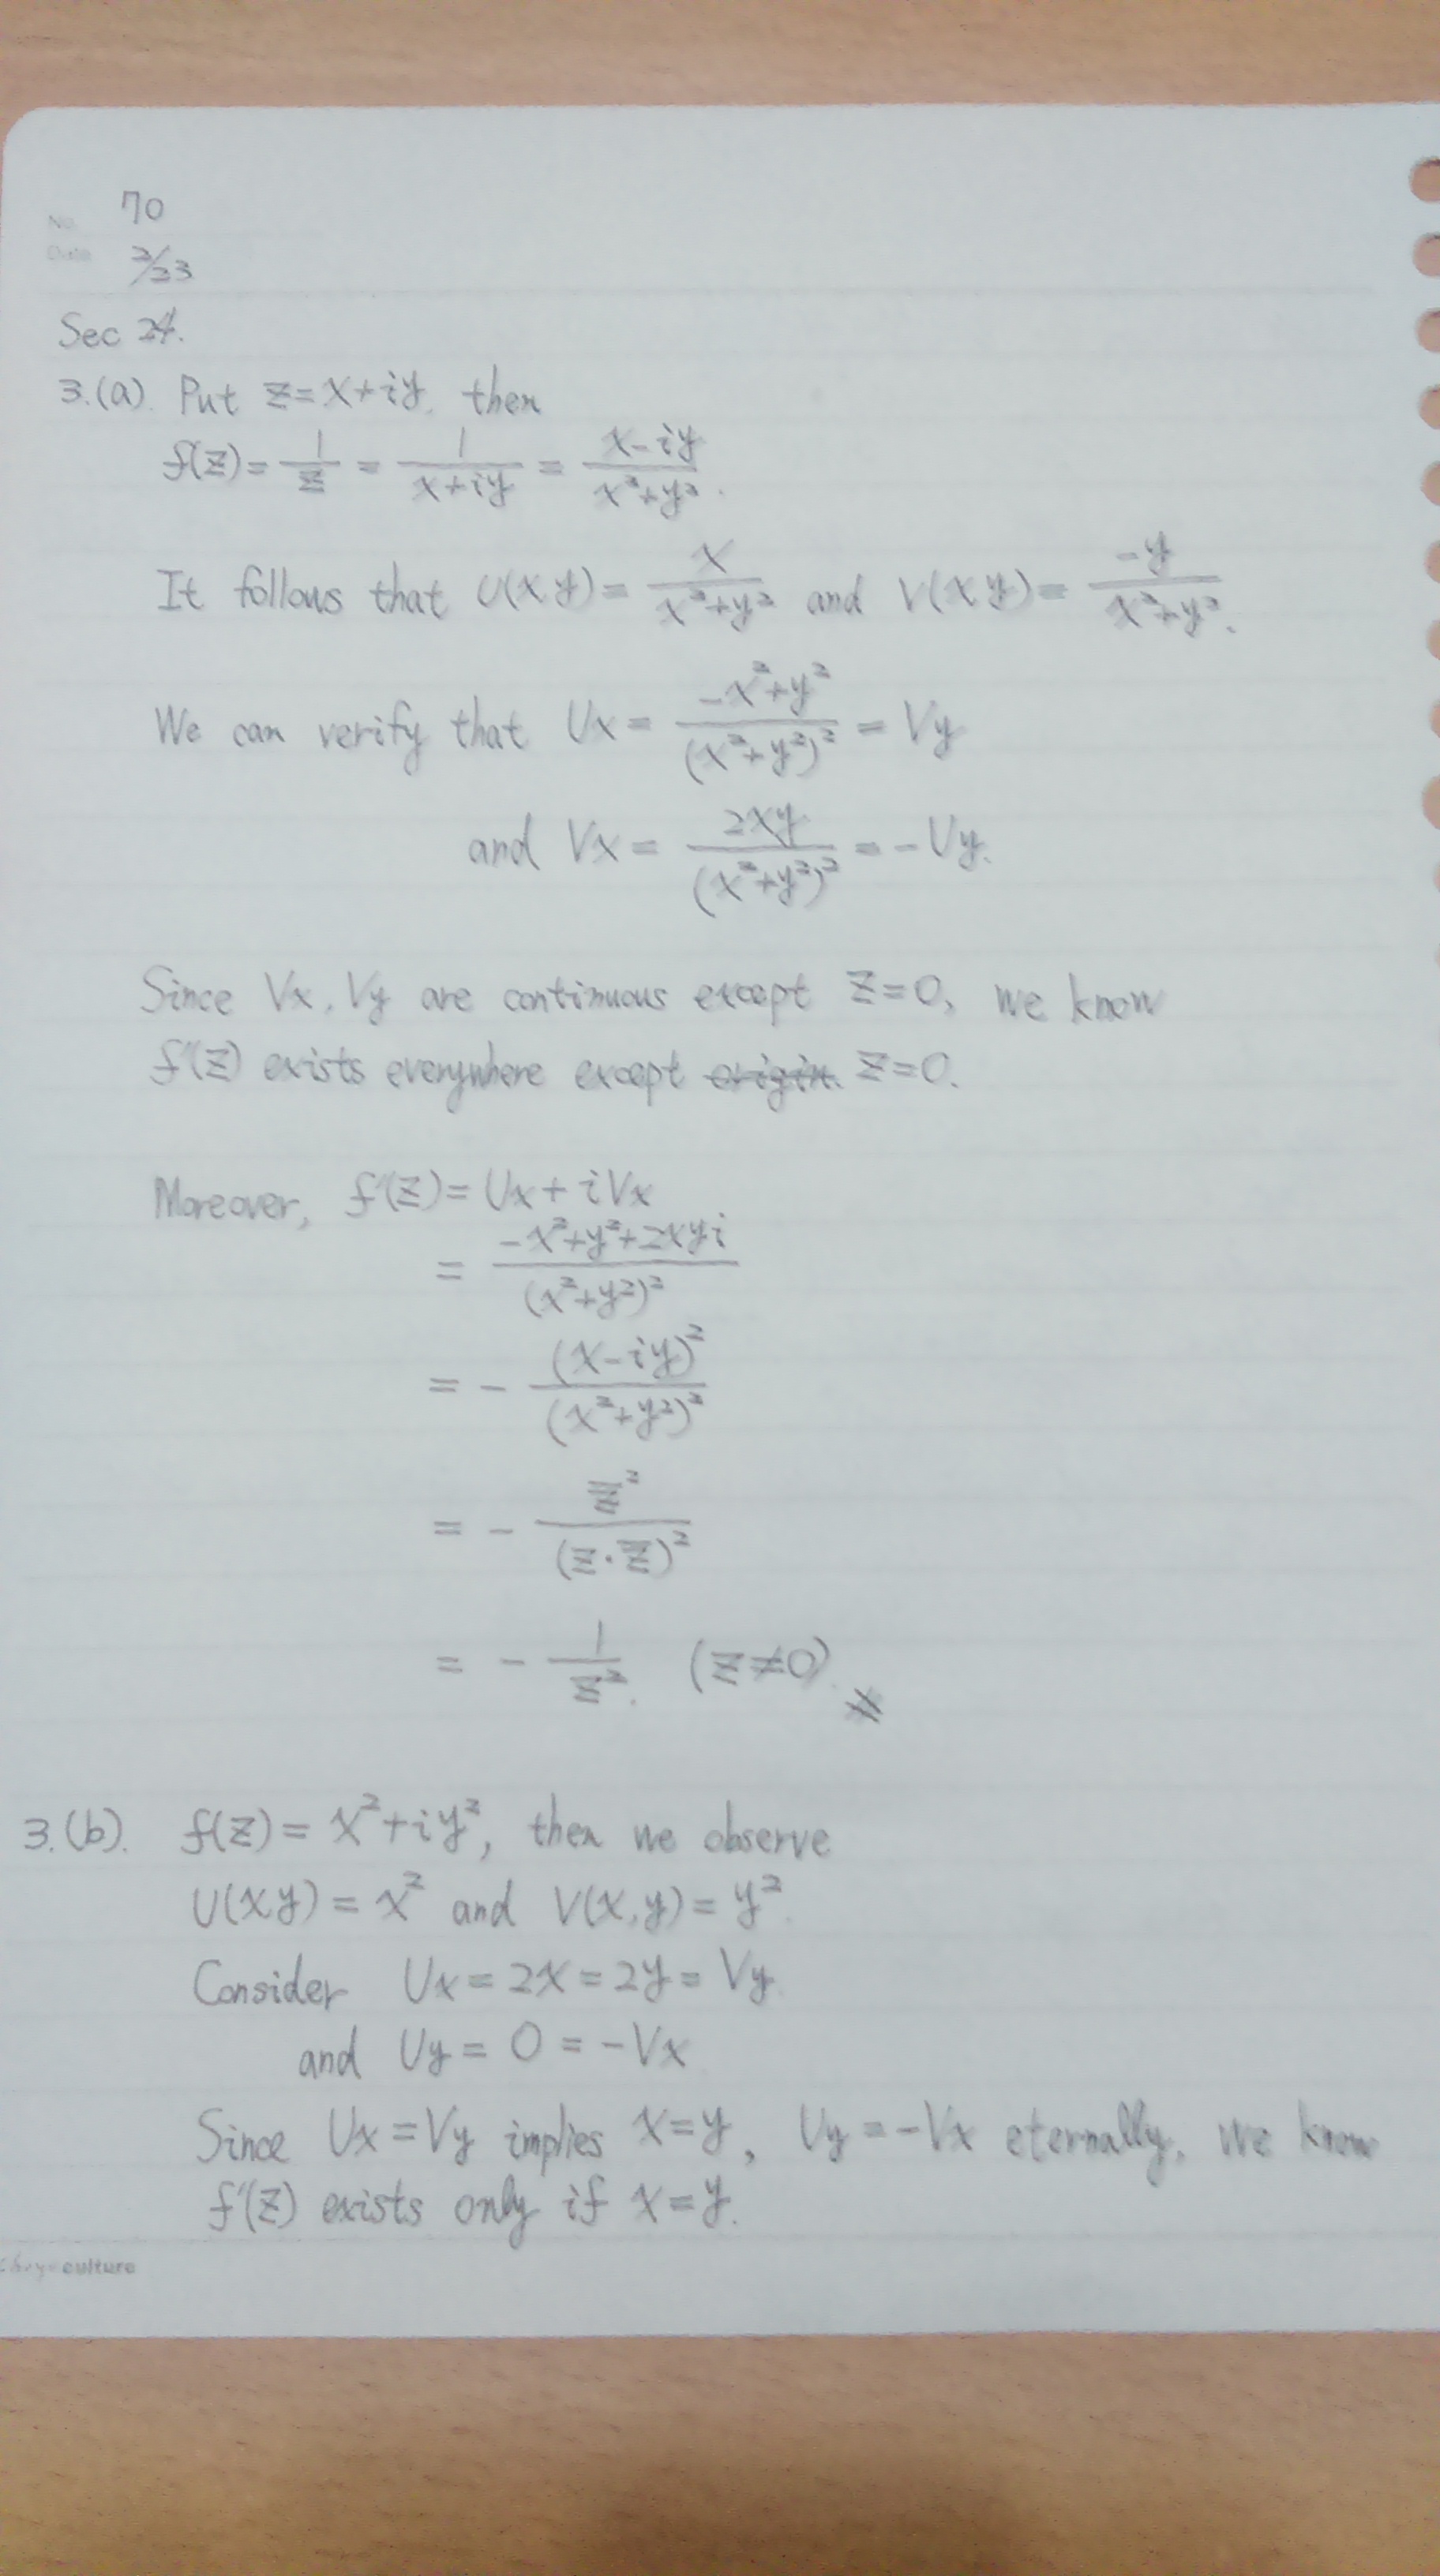 No. 70
Date 2/23
Sec 24.
3.(a). Put z=x+iy, then
f(z)= 1/z = 1/(x+iy) = (x-iy)/(x²+y²).
It follows that U(x,y)= x/(x²+y²) and V(x,y)= -y/(x²+y²).
We can verify that Ux= (-x²+y²)/(x²+y²)² = Vy
and Vx= 2xy/(x²+y²)² = -Uy.
Since Vx, Vy are continuous except z=0, we know
f'(z) exists everywhere except origin. z=0.
Moreover, f'(z)= Ux+iVx
= (-x²+y²+2xyi)/(x²+y²)²
= - (x-iy)²/(x²+y²)²
= - z̅²/(z·z̅)²
= - 1/z². (z≠0).
3.(b). f(z)= x²+iy², then we observe
U(x,y)= x² and V(x,y)= y².
Consider Ux=2x=2y=Vy.
and Uy= 0 = -Vx
Since Ux=Vy implies x=y, Uy=-Vx eternally, we know
f'(z) exists only if x=y.
culture